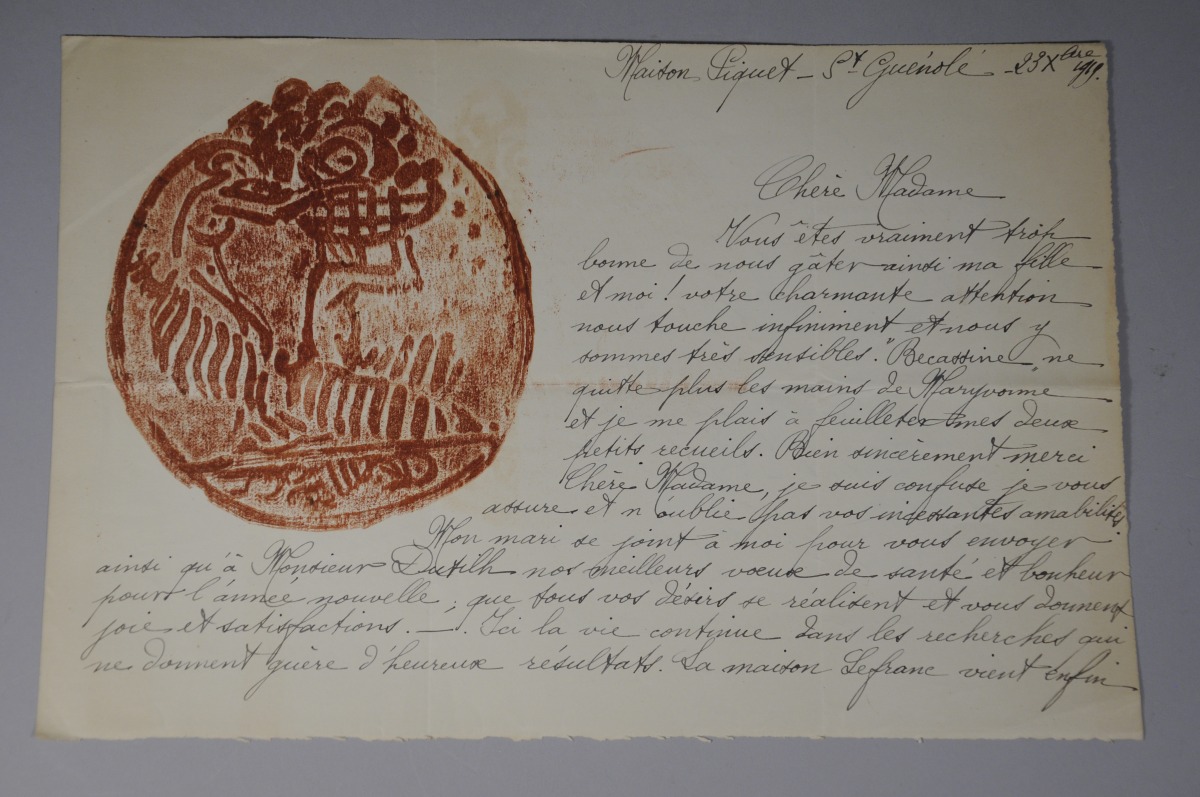 Maison Piquet - St Guénolé - 23 Xbre 1919.
Chère Madame
Vous êtes vraiment trop
bonne de nous gâter ainsi ma fille
et moi ! votre charmante attention
nous touche infiniment et nous y
sommes très sensibles. "Becassine" ne
quitte plus les mains de Maryvonne
et je me plais à feuilleter mes deux
petits recueils. Bien sincèrement merci
Chère Madame, je suis confuse je vous
assure et n'oublie pas vos incessantes amabilités
Mon mari se joint à moi pour vous envoyer
ainsi qu'à Monsieur Dutilh nos meilleurs vœux de santé et bonheur
pour l'année nouvelle, que tous vos désirs se réalisent et vous donnent
joie et satisfactions. — . Ici la vie continue dans les recherches qui
ne donnent guère d'heureux résultats. La maison Lefranc vient enfin